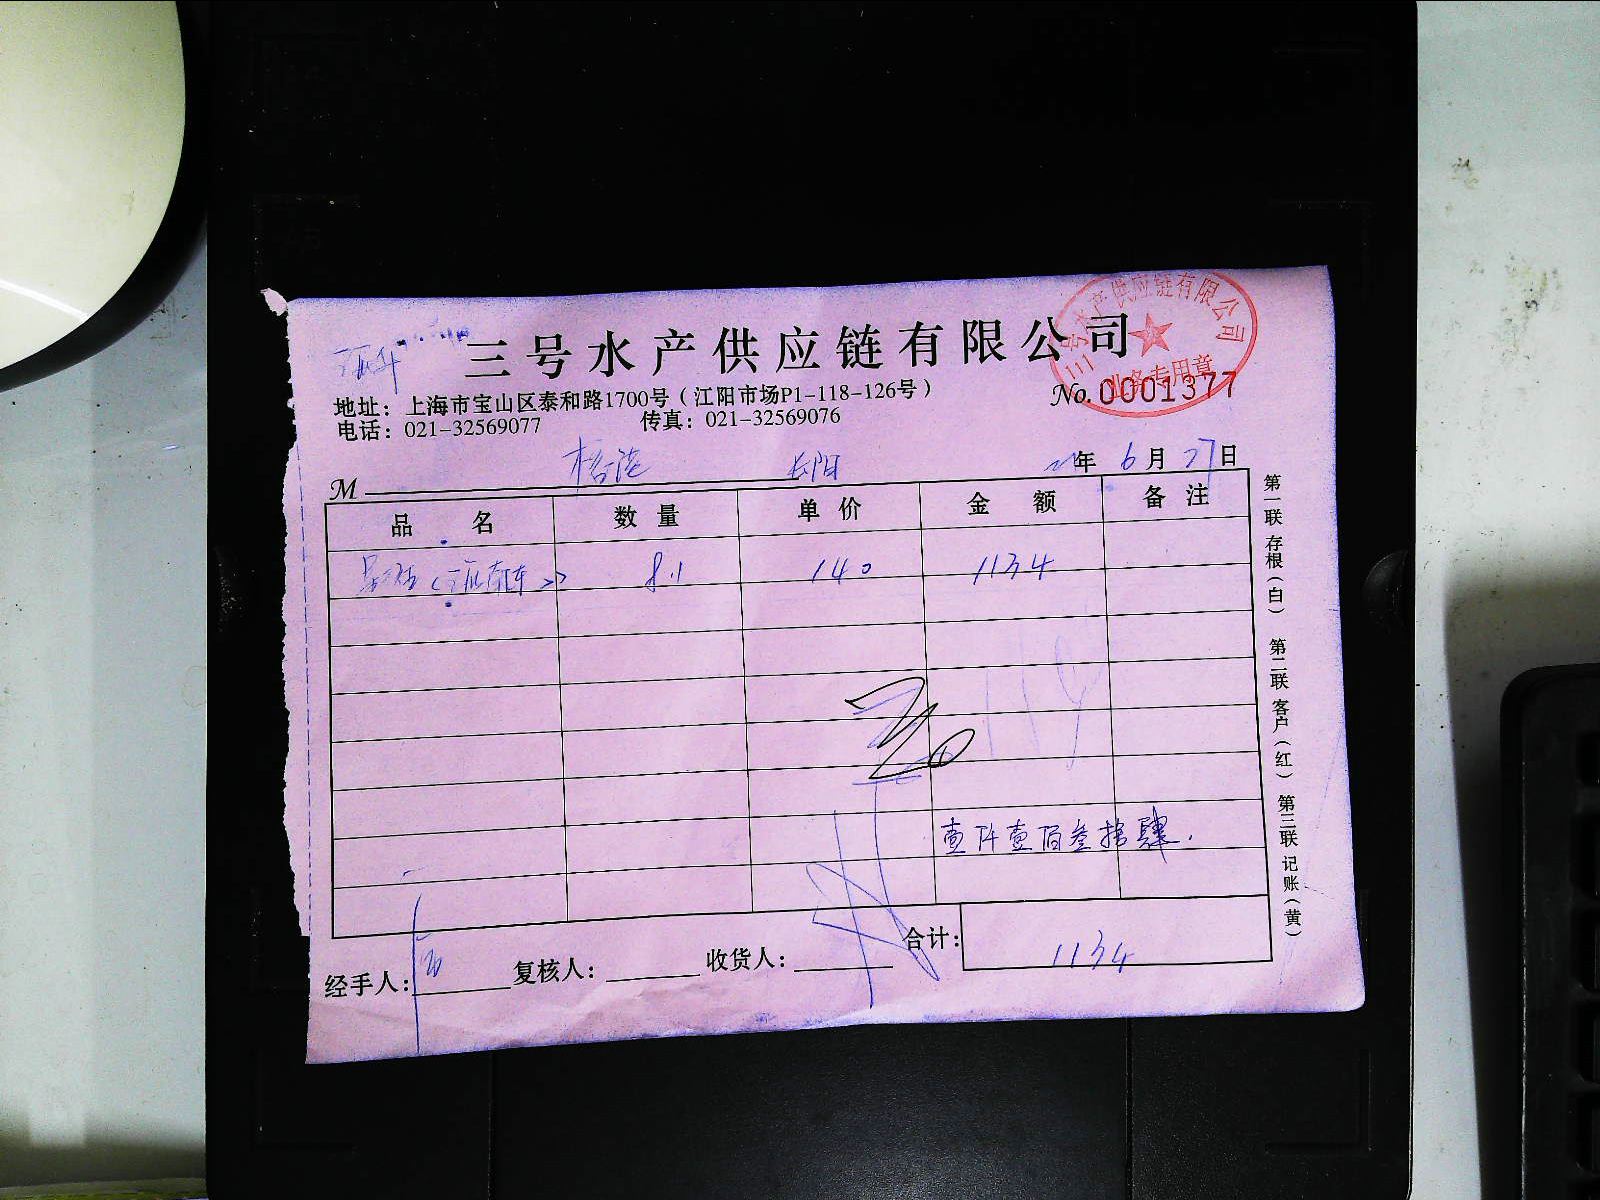 三号水产供应链有限公司
三号水产供应链有限公司
业务专用章
地址：上海市宝山区泰和路1700号（江阳市场P1-118-126号）
No.0001377
电话：021-32569077 传真：021-32569076
M 长阳 年 6 月 27 日
品名 数量 单价 金额 备注
8.1 140 1134
壹仟壹佰叁拾肆.
经手人： 复核人： 收货人： 合计： 1134
第一联 存根（白） 第二联 客户（红） 第三联 记账（黄）